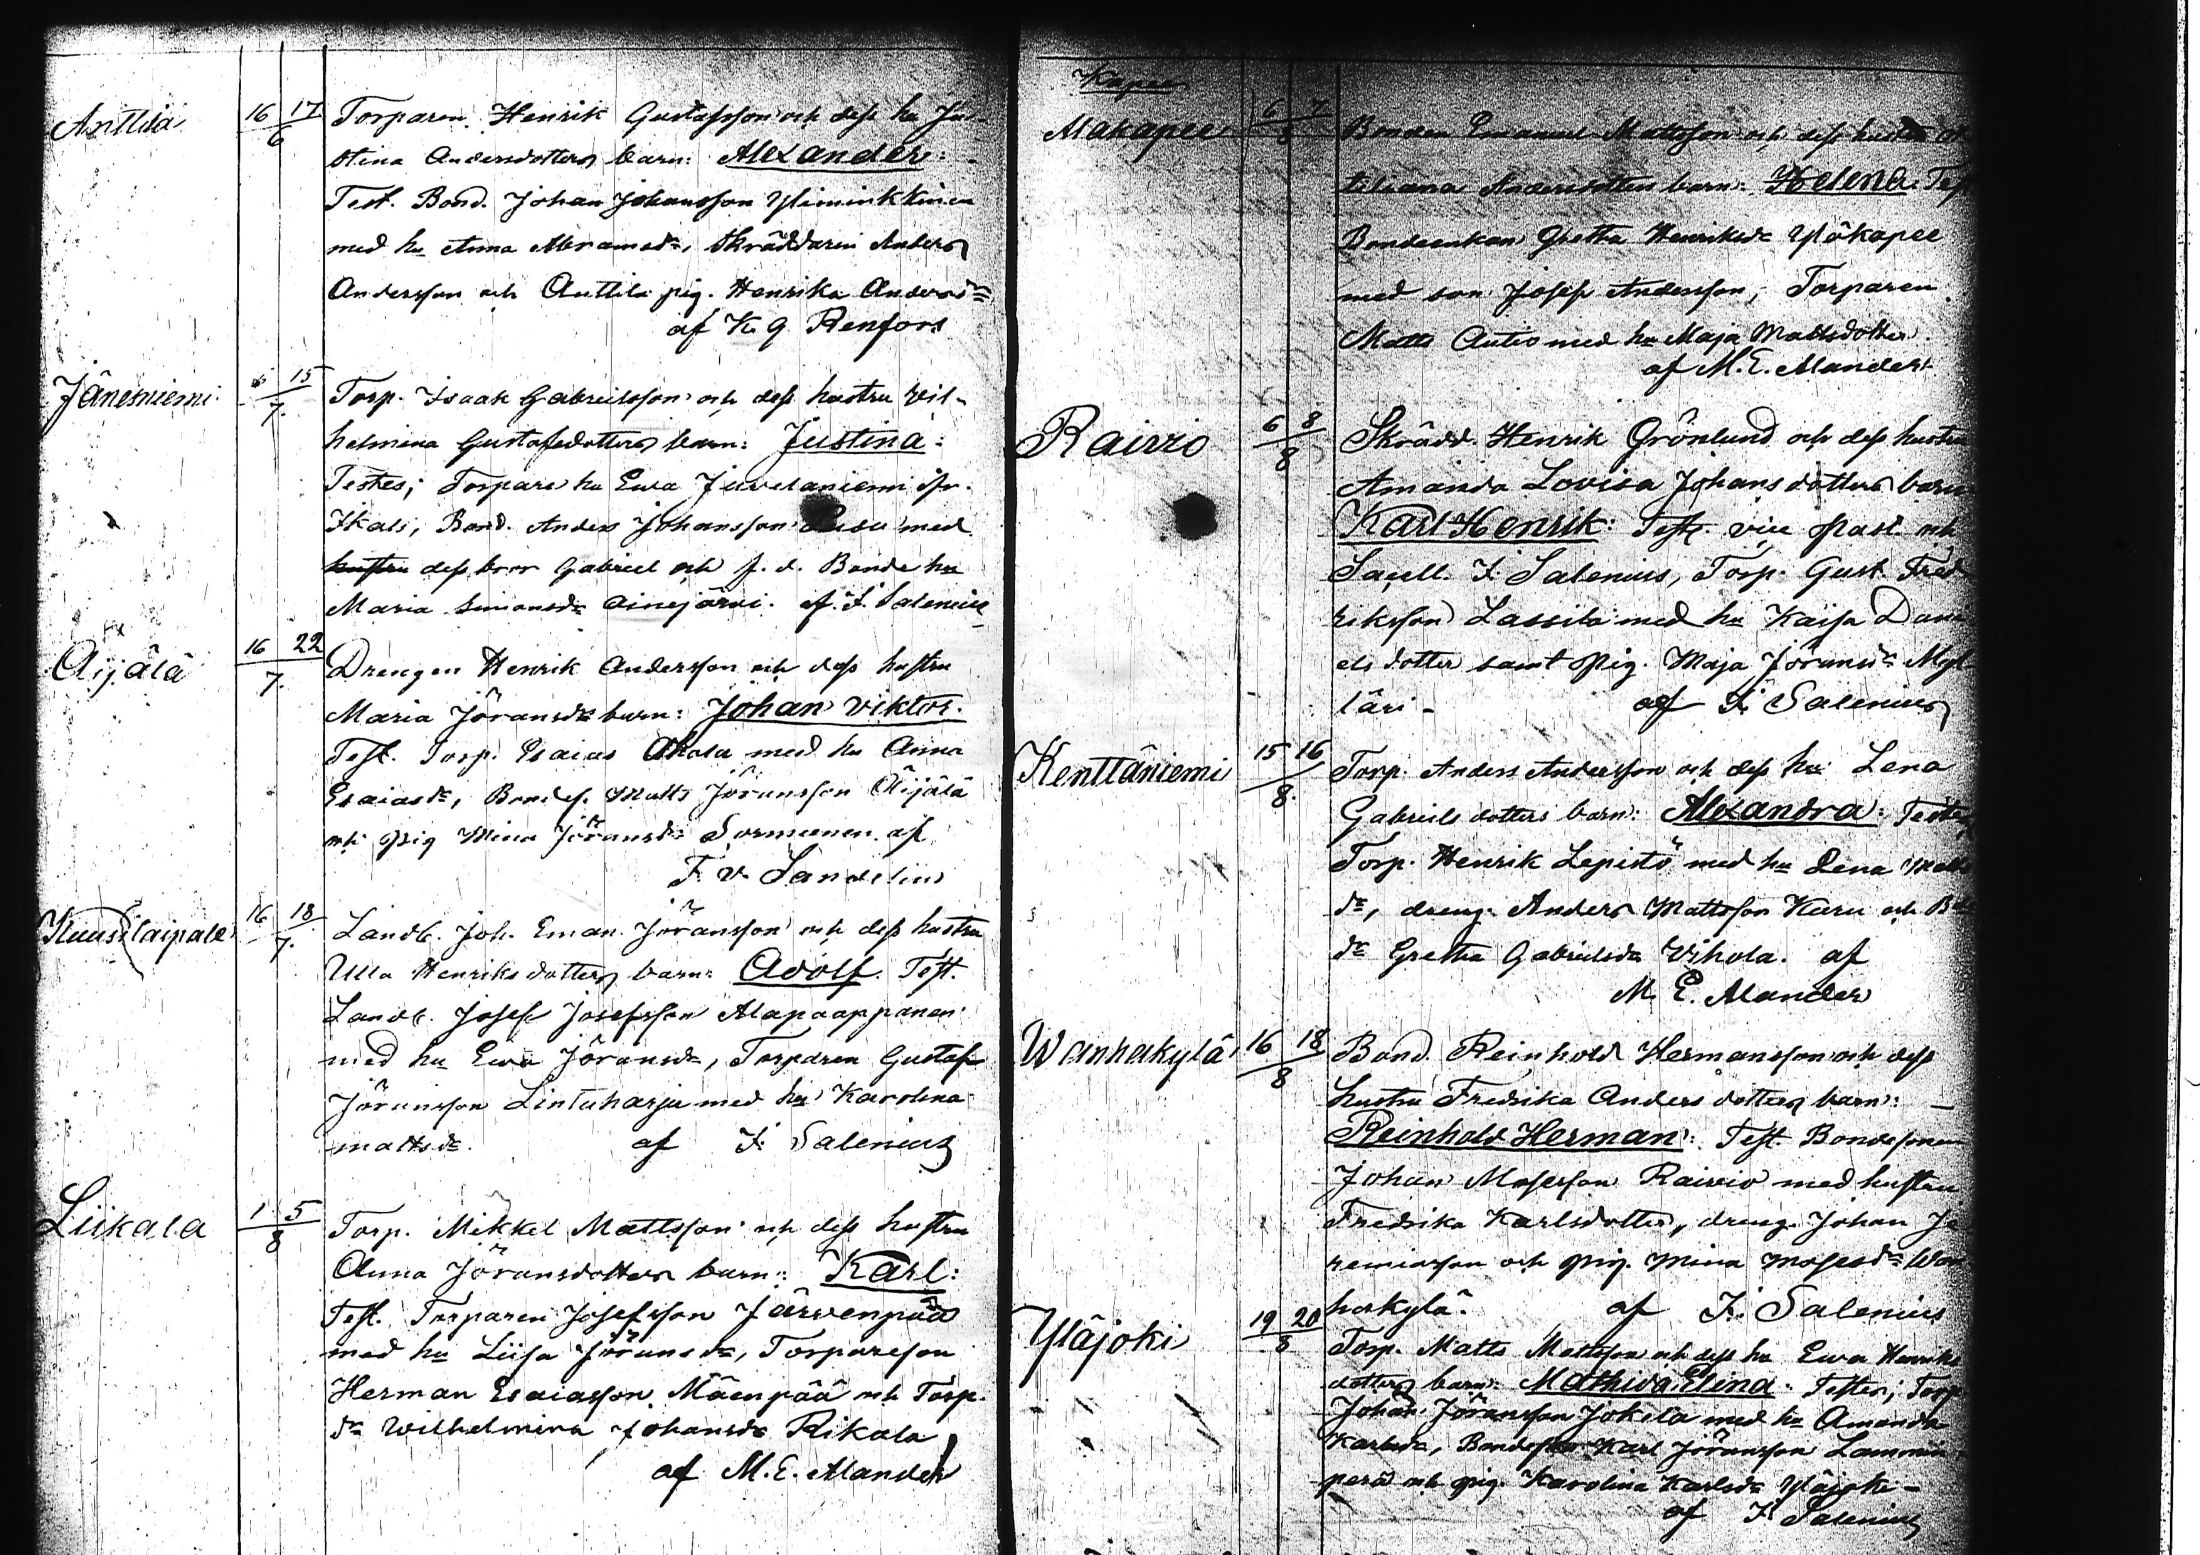 Anttila 16 17/6 Torparen Henrik Gustafsson och dess hu Ju-
stina Andersdotters barn: Alexander:
Test. Bond. Johan Johansson Yliminkkinen
med hu Anna Abramsdr, Skräddaren Anders
Andersson och Anttila pig. Henrika Andersdr
af K. G. Renfors
Jäneniemi 15/7. Torp. Isaak Gabrielsson och dess hustru Vil-
helmina Gustafsdotters barn: Justina:
Testes; Torpare hu Ewa Juvelaniemi ifr.
Ikalis, Bond. Anders Johansson med
hustru dess bror Gabriel och f. d. Bonde hu
Maria Simonsdr Ainejärvi. af F. Salenius
Äijälä 16 22/7. Drengen Henrik Andersson och dess hustru
Maria Jöransdr barn: Johan Viktor.
Test. Torp. Esaias Ahola med hu Anna
Esaiasdr, Bondes. Matts Jöransson Äijälä
och pig Mina Jöransdr Sormunen af
F. V. Sandelius
Kuusilaipale 16 18/7. Landb. Joh. Eman. Jöransson och dess hustru
Ulla Henriksdotters barn: Adolf. Test.
Landb. Josef Josefsson Alapaappanen
med hu Ewa Jöransdr, Torparen Gustaf
Jöransson Lintuharju med hu Karolina
Mattsdr. af F. Salenius
Liikala 1 5/8 Torp. Mikkel Mattsson och dess hustru
Anna Jöransdotters barn: Karl:
Test. Torparen Josefsson Järvenpää
med hu Liisa Jöransdr, Torpareson
Herman Esaiasson Mäenpää och Torp.
dr Wilhelmina Johansdr Rikala
af M. E. Alander
Kapee
Alakapee 6 7/8 Bonden Emanuel Mattsson och dess hustru
tiliana Andersdotters barn: Helena. Test
Bondeenkan Gretha Henriksdr Yläkapee
med son Josef Andersson, Torparen
Matts Autio med hu Maja Mattsdotter.
af M. E. Alander
Raivio 6 8/8 Skrädd. Henrik Grönlund och dess hustru
Amanda Lovisa Johansdotters barn
Karl Henrik: Test. vice past. och
Sacell. F. Salenius, Torp. Gust. Fred-
riksson Lassila med hu Kajsa Dani
elsdotter samt pig. Maja Jöransdr Myl
läri - af F. Salenius
Kenttäniemi 15 16/8. Torp. Anders Andersson och dess hu Lena
Gabrielsdotters barn: Alexandra: Testes
Torp. Henrik Lepistö med hu Lena Matts
dr, dreng. Anders Mattsson Kuru och
dr Gretha Gabrielsdr Vihola. af
M. E. Alander
Wanhakylä 16 18/8 Bond. Reinhold Hermansson och dess
hustru Fredrika Andersdotters barn: -
Reinhold Herman: Test. Bondesonen
Johan Mosesson Raivio med hustru
Fredrika Karlsdotter, dreng. Johan Je
remiasson och pig. Mina Mosesdr Wan
hakylä. af F. Salenius
Yläjoki 19 20/8 Torp. Matts Mattsson och dess hu Ewa Henriks
dotters barn: Mathilda Elina: Testes; Torp
Johan Jöransson Jokela med hu Amanda
Karlsdr, Bondeson Karl Jöransson Lammin
perä och pig. Karolina Karlsdr Yläjoki -
af F. Salenius